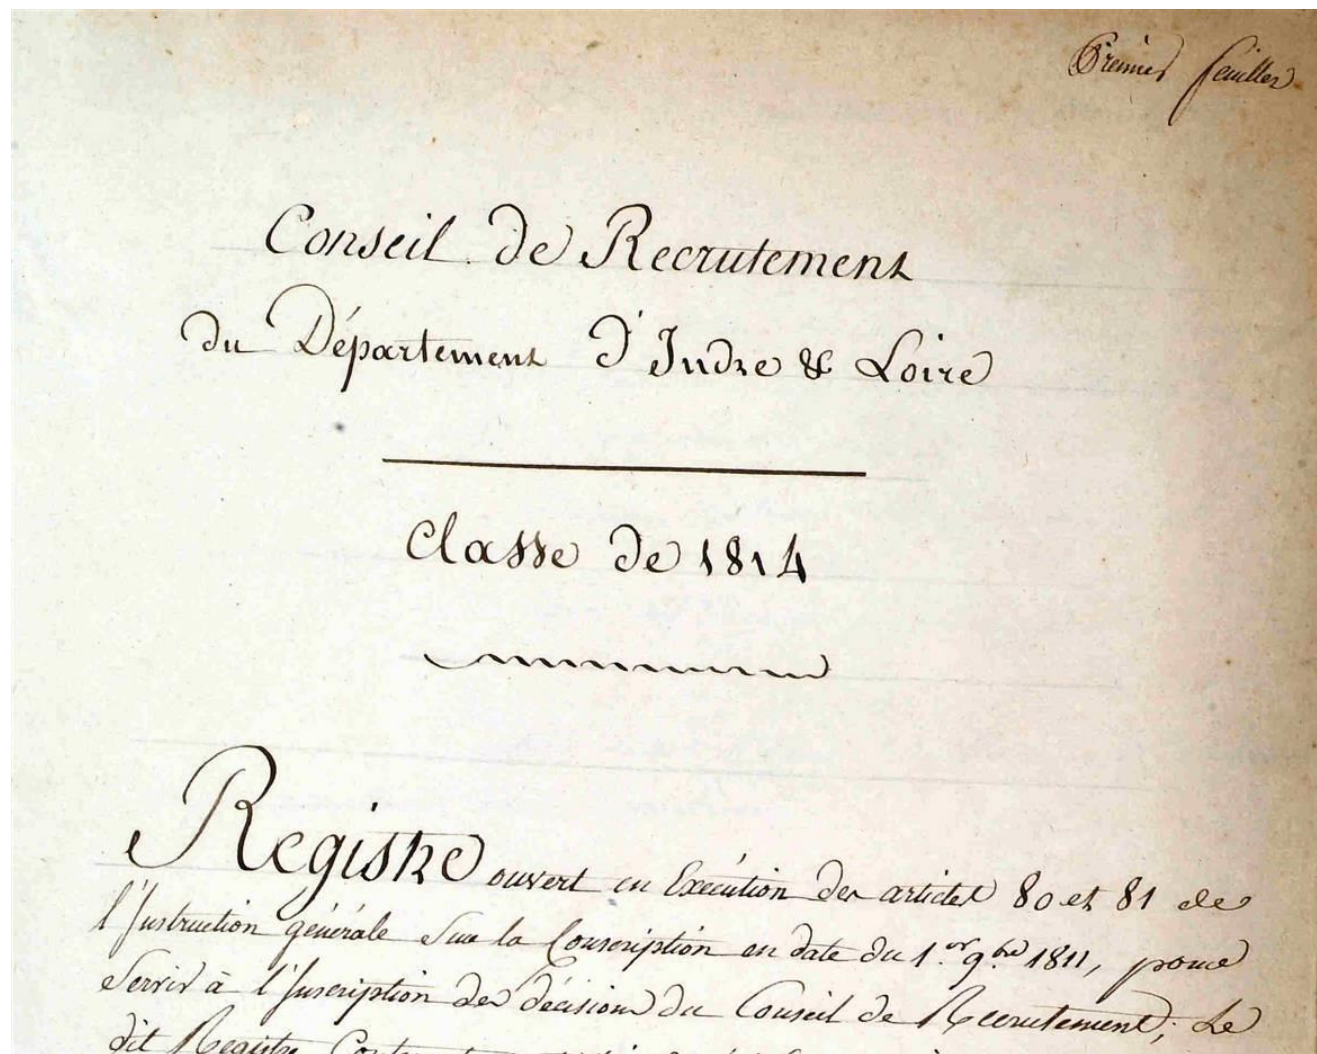 Premier feuillet
Conseil de Recrutement
du Département d'Indre & Loire
Classe de 1814
Registre ouvert en Exécution des articles 80 et 81 de
l'Instruction générale sur la Conscription en date du 1.er 9.bre 1811, pour
servir à l'Inscription des décisions du Conseil de Recrutement; Le
dit Registre